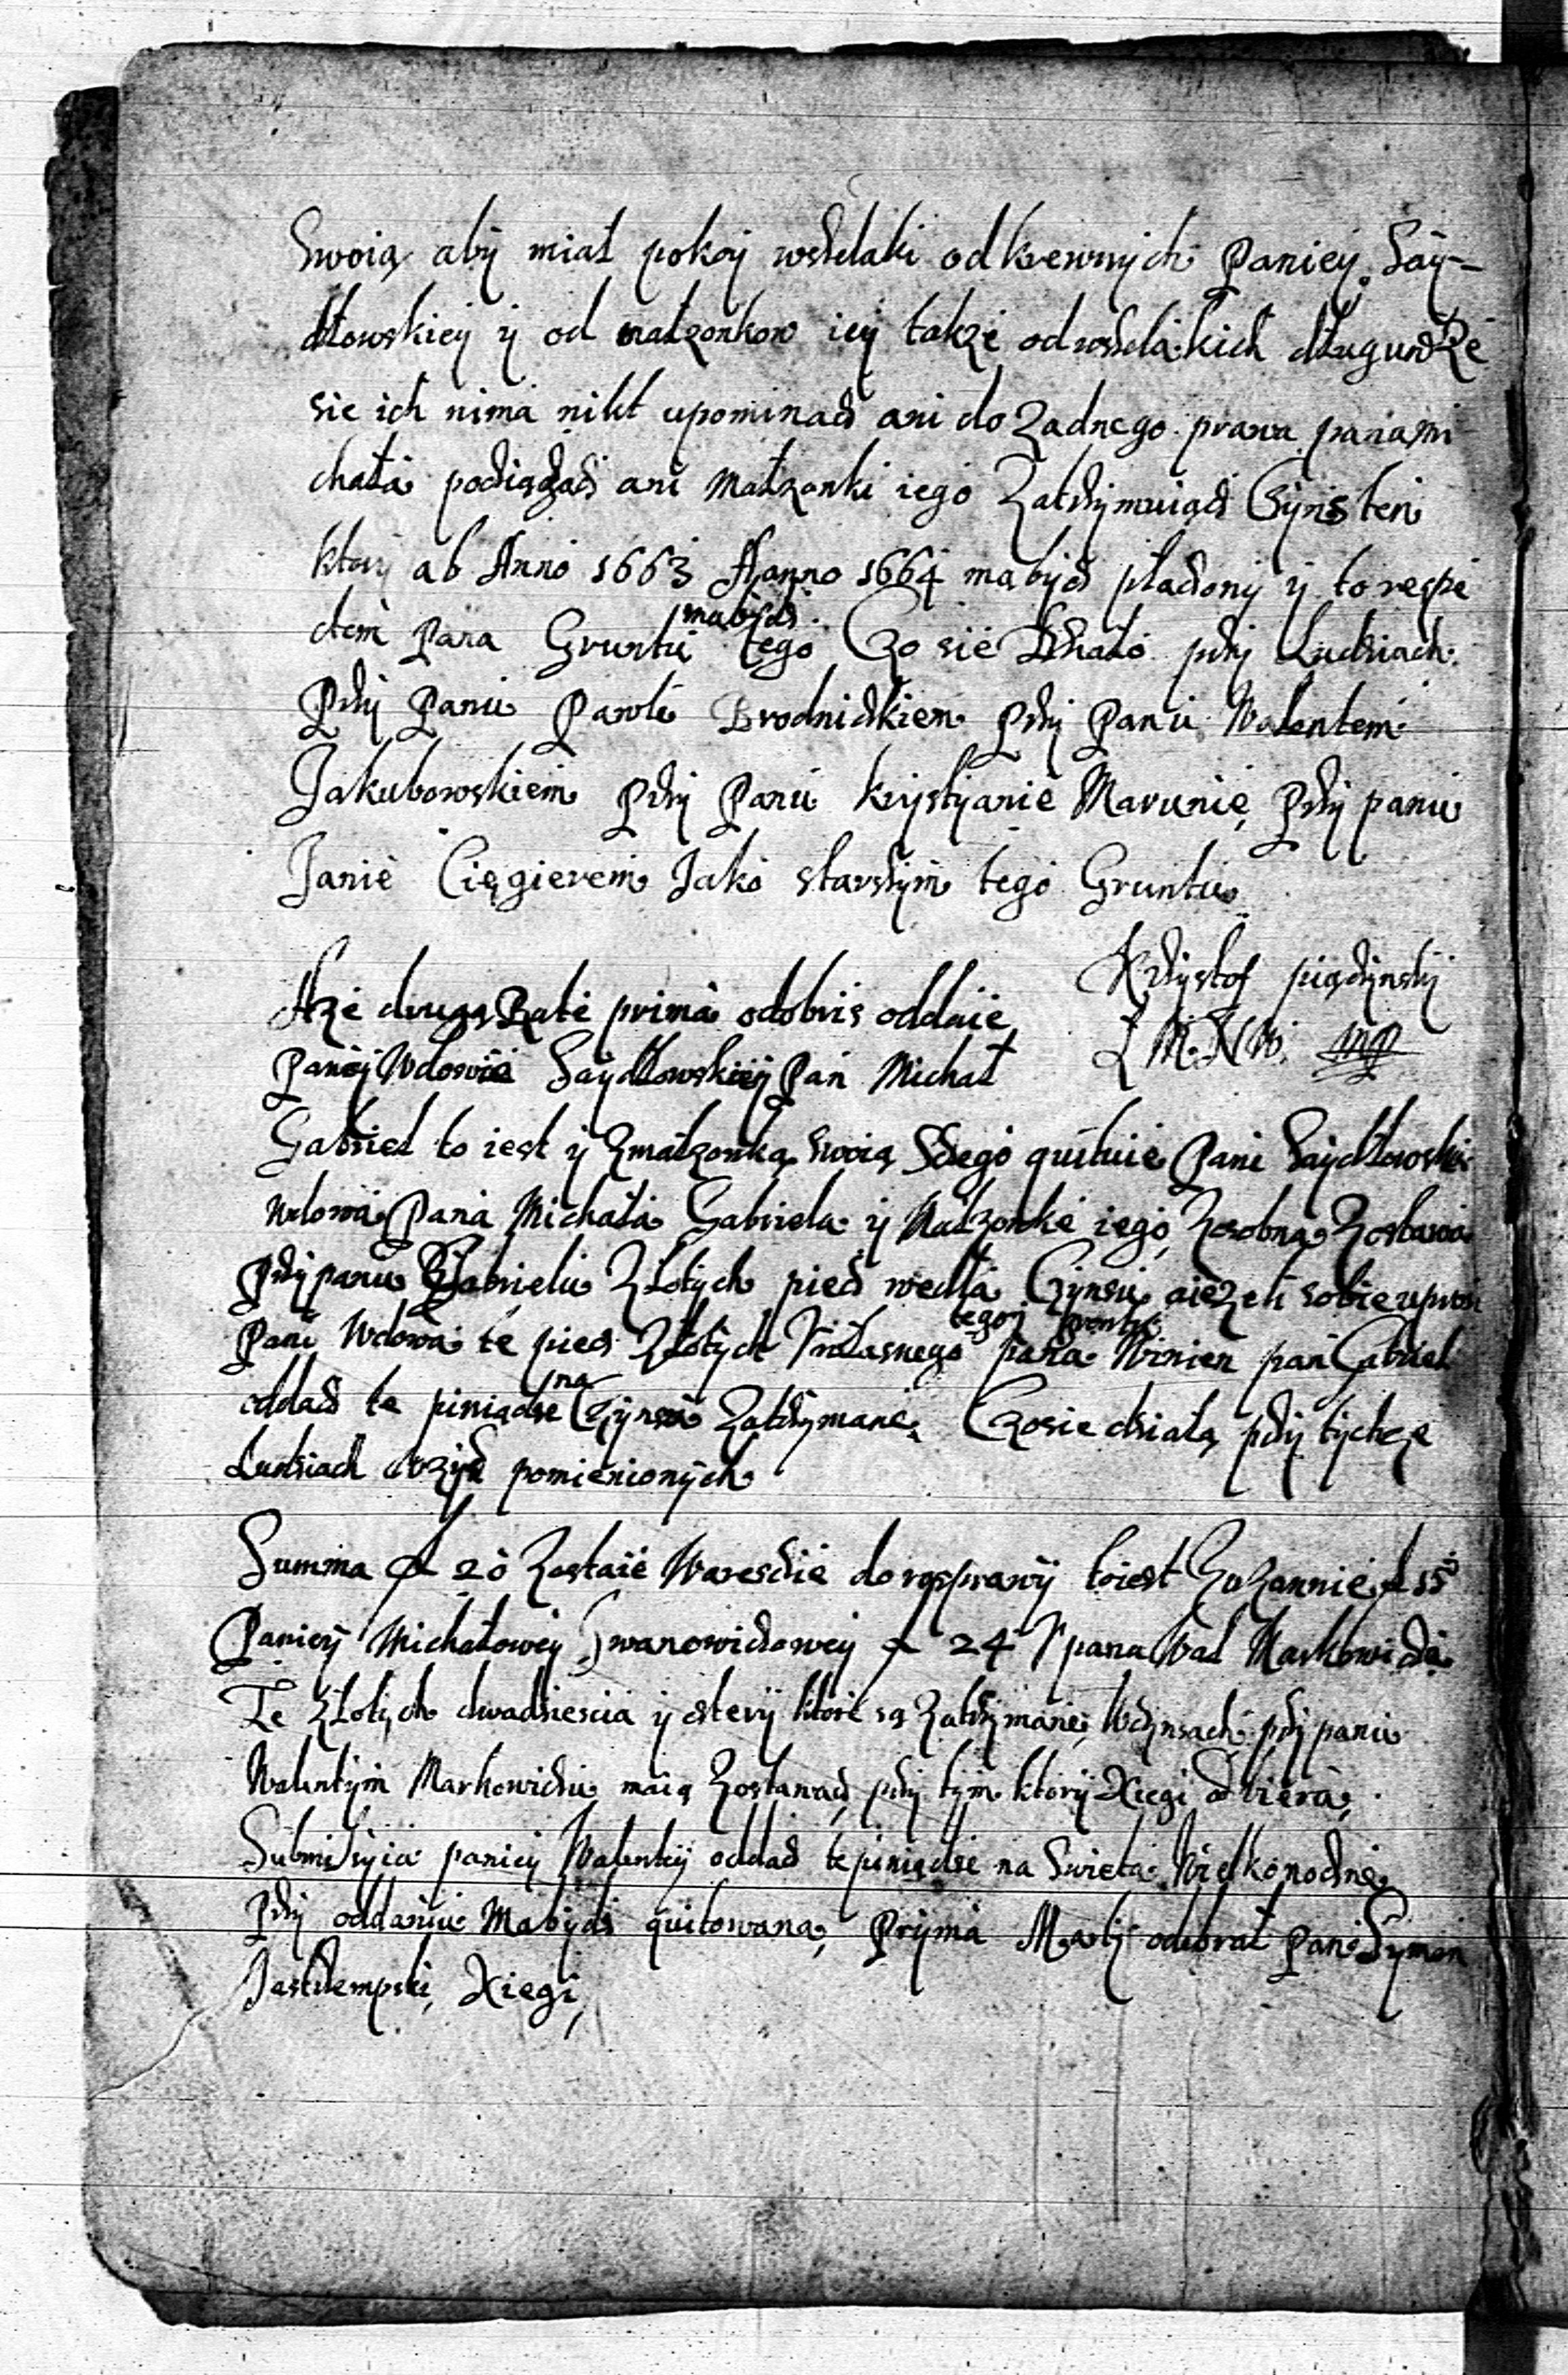 Swoią aby miał pokoy wszelaki od krewnych Paniey Say-
dłowskiey y od małzonkow iey takze od wszelakich długuw ze
sie ich nima nikt upominacz ani do zadnego prawa pana Mi
chała pocziągacz ani Małzonki iego zatrzymuiącz Czyns ten
ktory ab Anno 1663 A anno 1664 ma bycz płaczony y to
czem Pana Gruntu mabycz tego Czo sie działo przy Ludziach
Przy Panu Pawle Brodnickiem Przy Panu Walentem
Jakubowskiem Przy Panu krystyanie Marunie, Przy panu
Janie Cięgierem Jako starszym tego Gruntu
Krzysztof
Aze drugą Rate prima odobris oddaie,
L M. mp
Paniey Wdowie Saydłowskiey Pan Michał
Gabriel to iest y z małzonką swoią Sczego quituie Pani Saydłowska
wdowa Pana Michała Gabriela y Małzonke iego, zosobna zostawia
Przy panu Gabrielu złotych piecz wedla Czynsu aiezeli sobie uprosi
Pani Wdowa te piecz złotych tegoz Pana Winien pan Gabriel
oddacz te piniądze na Czynsu zatrzymane, Czo sie działa przy tychze
Ludziach wzyz pomienionych
Summa fl 20 zostaie Wareście do rosprawy to iest Zuzannie fl 15
Paniey Michałowey Iwanowiczowey fl 24 V pana Wal Markowicza
Te złotych dwadziescia y cztery ktore są zatrzymane, Wczynsach przy panu
Walentym Markowiczu, maią zostawacz, przy tym ktory Xiegi odbiera,
Submissyia paniey Walenty oddacz te piniądze na Swieta Wielkonoczne,
Przy oddaniu Mabycz quitowana, Pryma Martij odebrał Pan Symon
Jastrzempski, Xiegi,